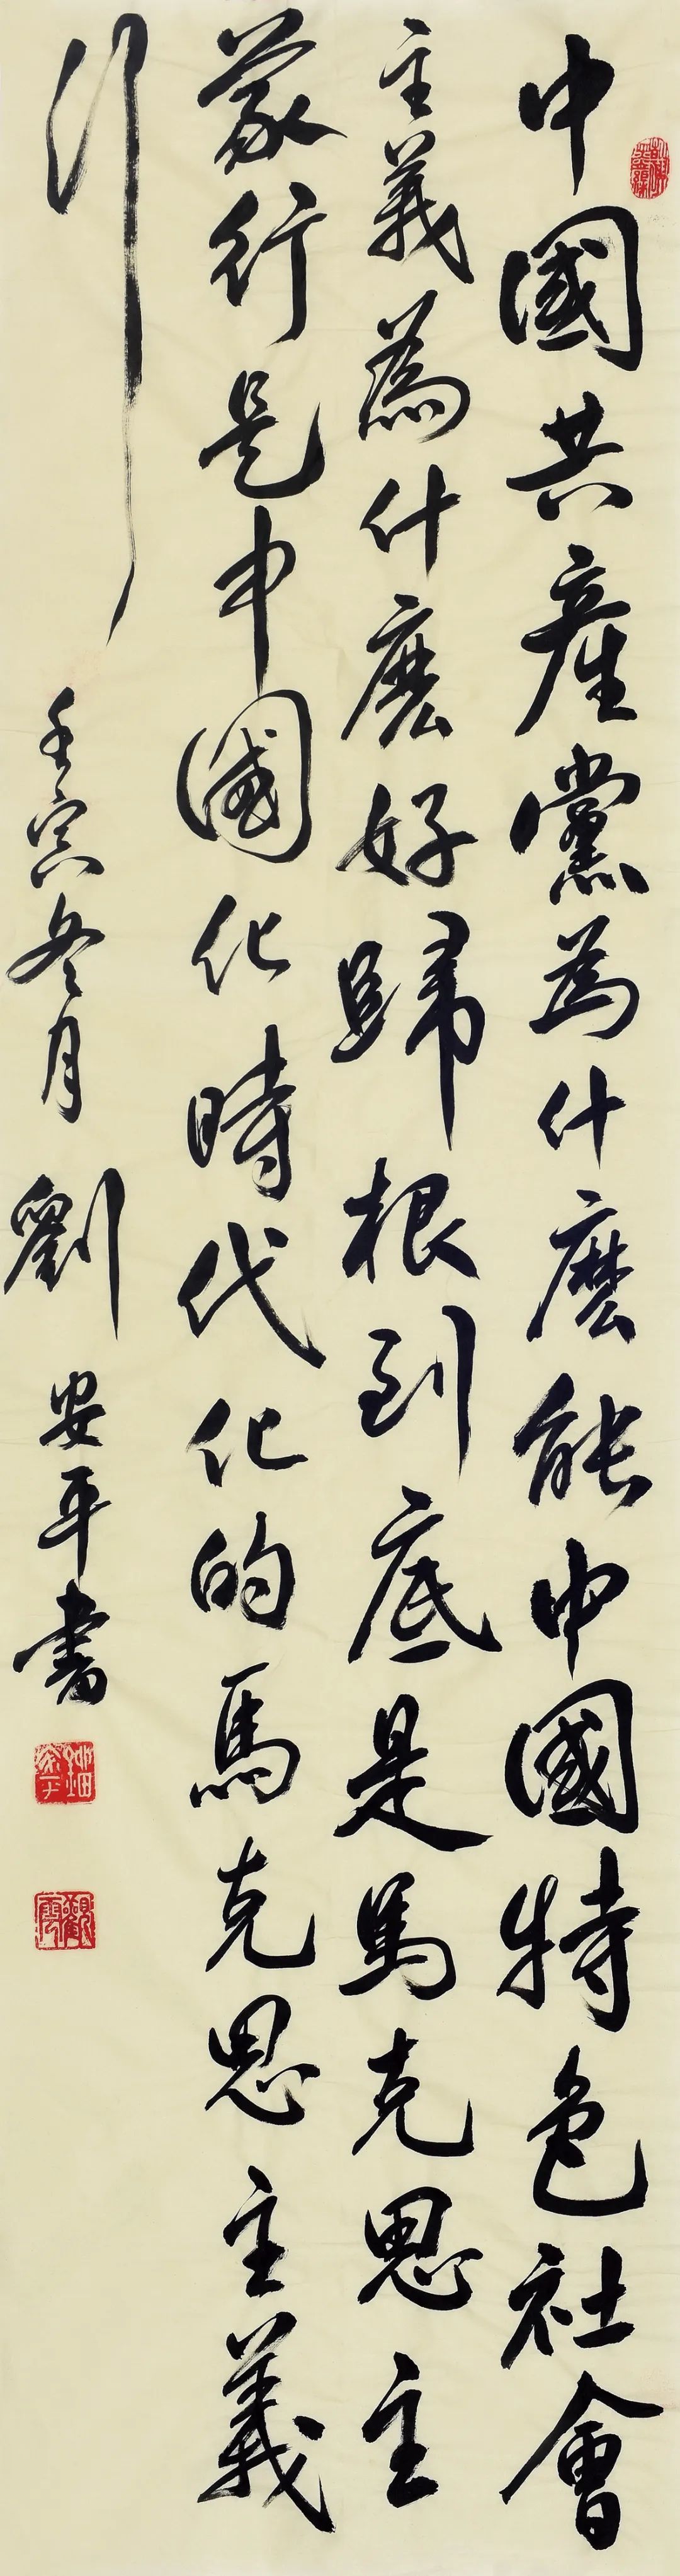 中國共產黨為什麼能中國特色社會
主義為什麼好歸根到底是馬克思主
義行是中國化時代化的馬克思主義
行
壬寅冬月
劉安平書